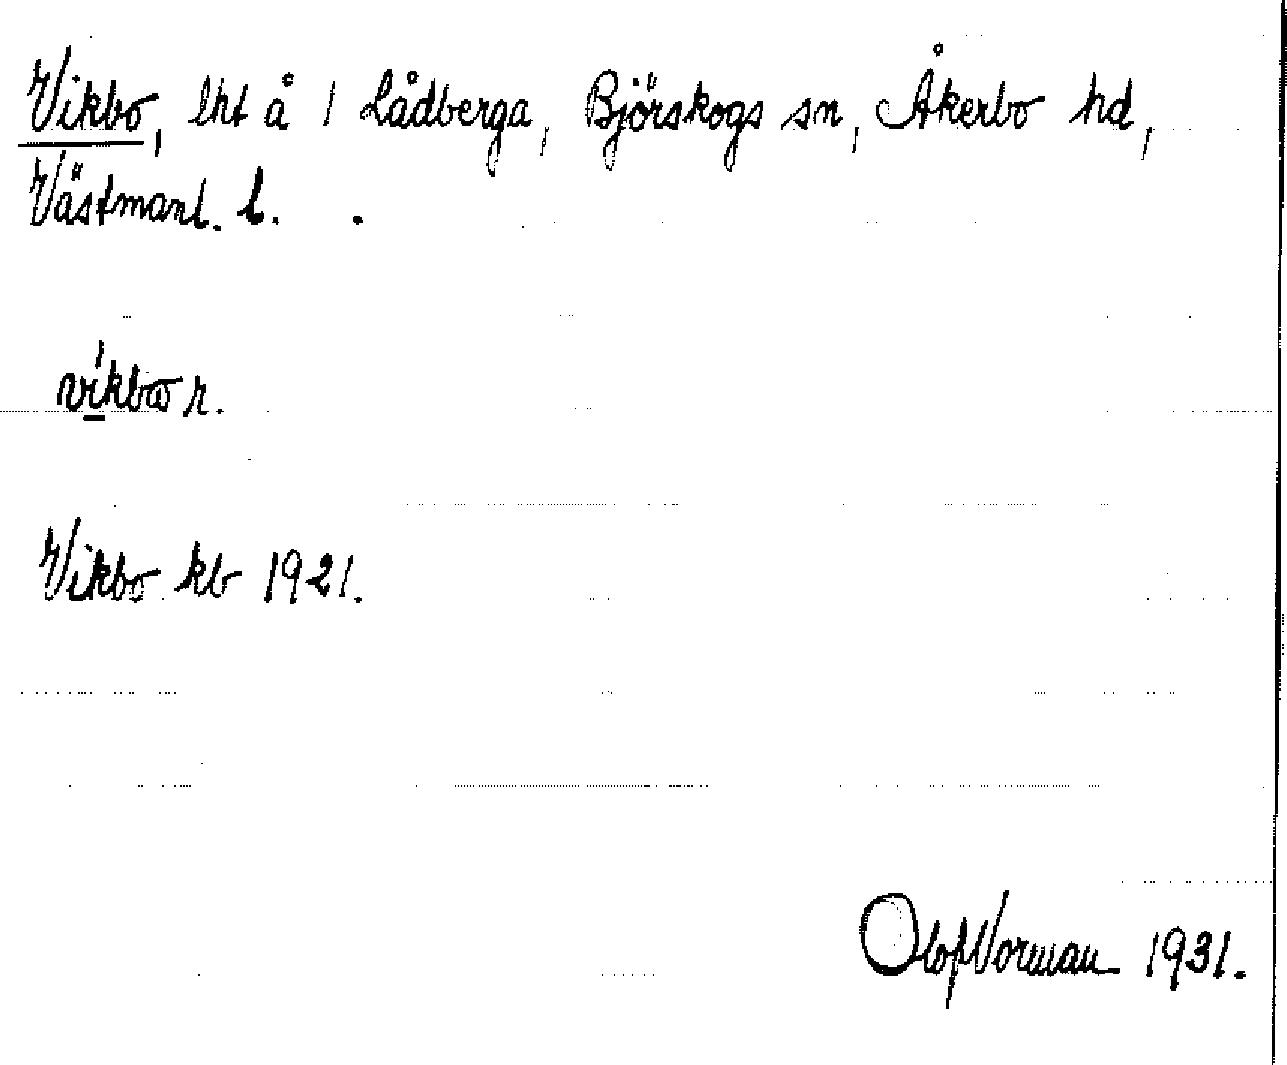 Vikbo, lht å 1 Lådberga, Björskogs sn, Åkerbo hd,
Västmanl. l.
víkbω r.
Vikbo kb 1921.
Olof Vorman 1931.